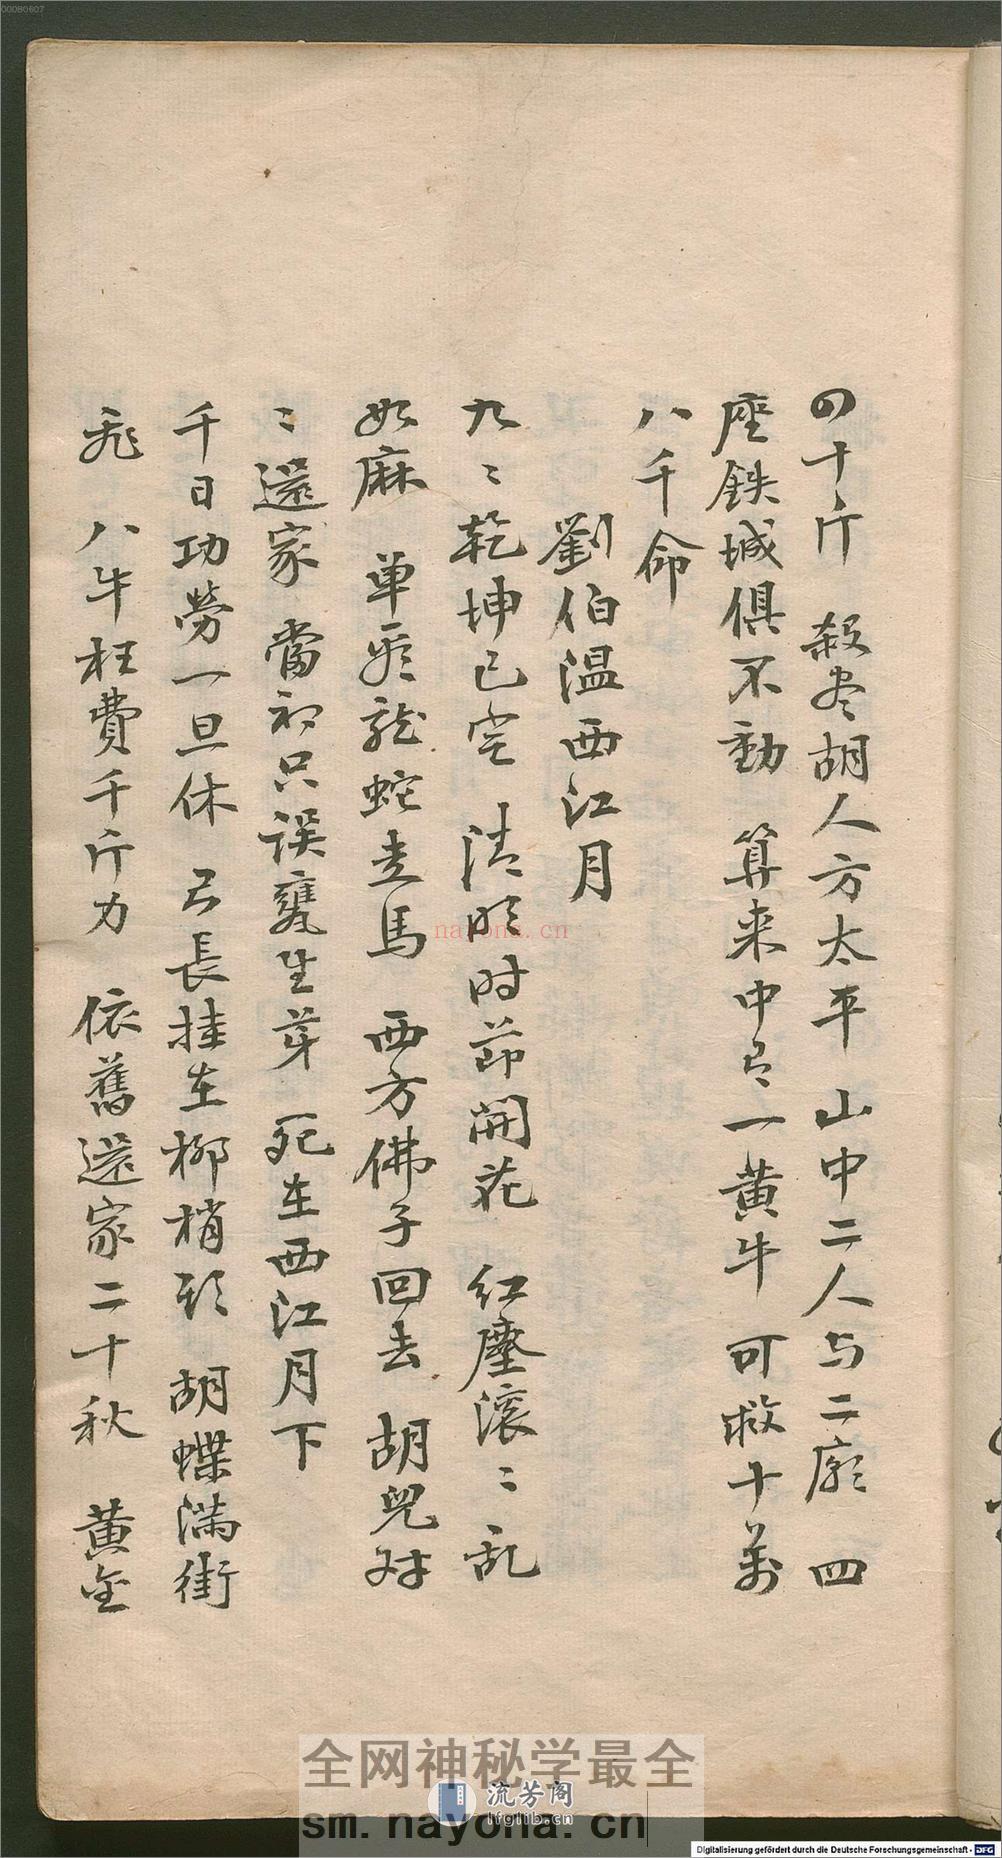 00080607
四十斤 殺尽胡人方太平 山中二人与二廟 四
座鉄城俱不動 算来中々一黄牛 可救十萬
八千命
劉伯温西江月
九〻乾坤已定 清明时节開花 红塵滚〻乱
如麻 单 龍蛇走馬 西方佛子回去 胡兒对
〻還家 當初只誤甕生芽 死在西江月下
千日功勞一旦休 弓長挂在柳梢头 胡蝶满街
飛 八牛枉費千斤力 依舊還家二十秋 黄金
nayona.cn
全网神秘学最全
流芳阁
lfglib.cn
sm.nayona.cn
Digitalisierung gefördert durch die Deutsche Forschungsgemeinschaft - DFG